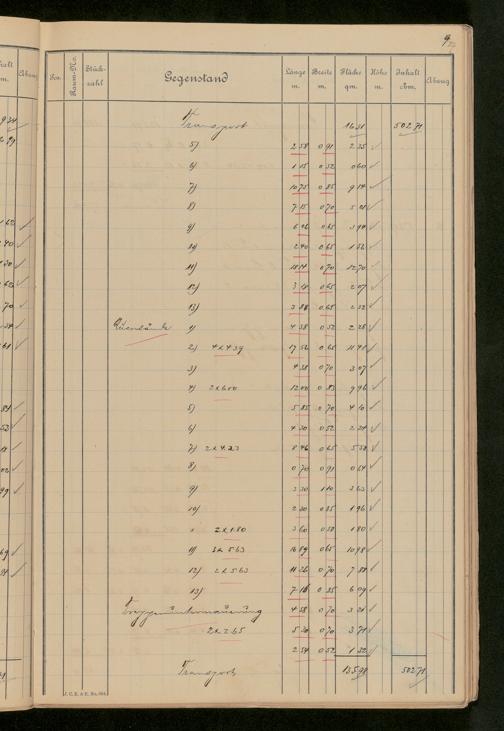 Pos. Raum-No. Stück-zahl Gegenstand Länge m. Breite m. Fläche qm. Höhe m. Inhalt cbm. Abzug
Transport 16 31 502 71
5) 2 58 0 91 2 35
6) 1 15 0 52 0 60
7) 10 75 0 85 9 14
8) 7 15 0 70
9) 0 65
10) 2 40 0 65 1 56
11) 0 70 12 70
12) 3 18 0 65 2 07
13) 3 88 0 65 2 52
1) 4 38 0 52 2 28
2) 4 x 4.39 17 56 0 65 11 41
3) 4 38 0 70 3 07
4) 2 x 6.00 12 00 0 83 9 96
5) 5 85 0 70 4 10
6) 4 30 0 52 2 24
7) 2 x 4.23 8 46 0 65 5 50
8) 0 70 0 91 0 64
9) 3 30 1 10 3 63
10) 2 30 0 85 1 96
2 x 1.80 3 60 0 50 1 80
11) 3 x 5.63 16 89 0 65 10 98
12) 2 x 5.63 11 26 0 70 7 88
13) 7 16 0 85 6 09
Treppenuntermauerung 4 58 0 70 3 21
2 x 2.65 5 30 0 70 3 71
2 54 0 52 1 32
Transport 502 71